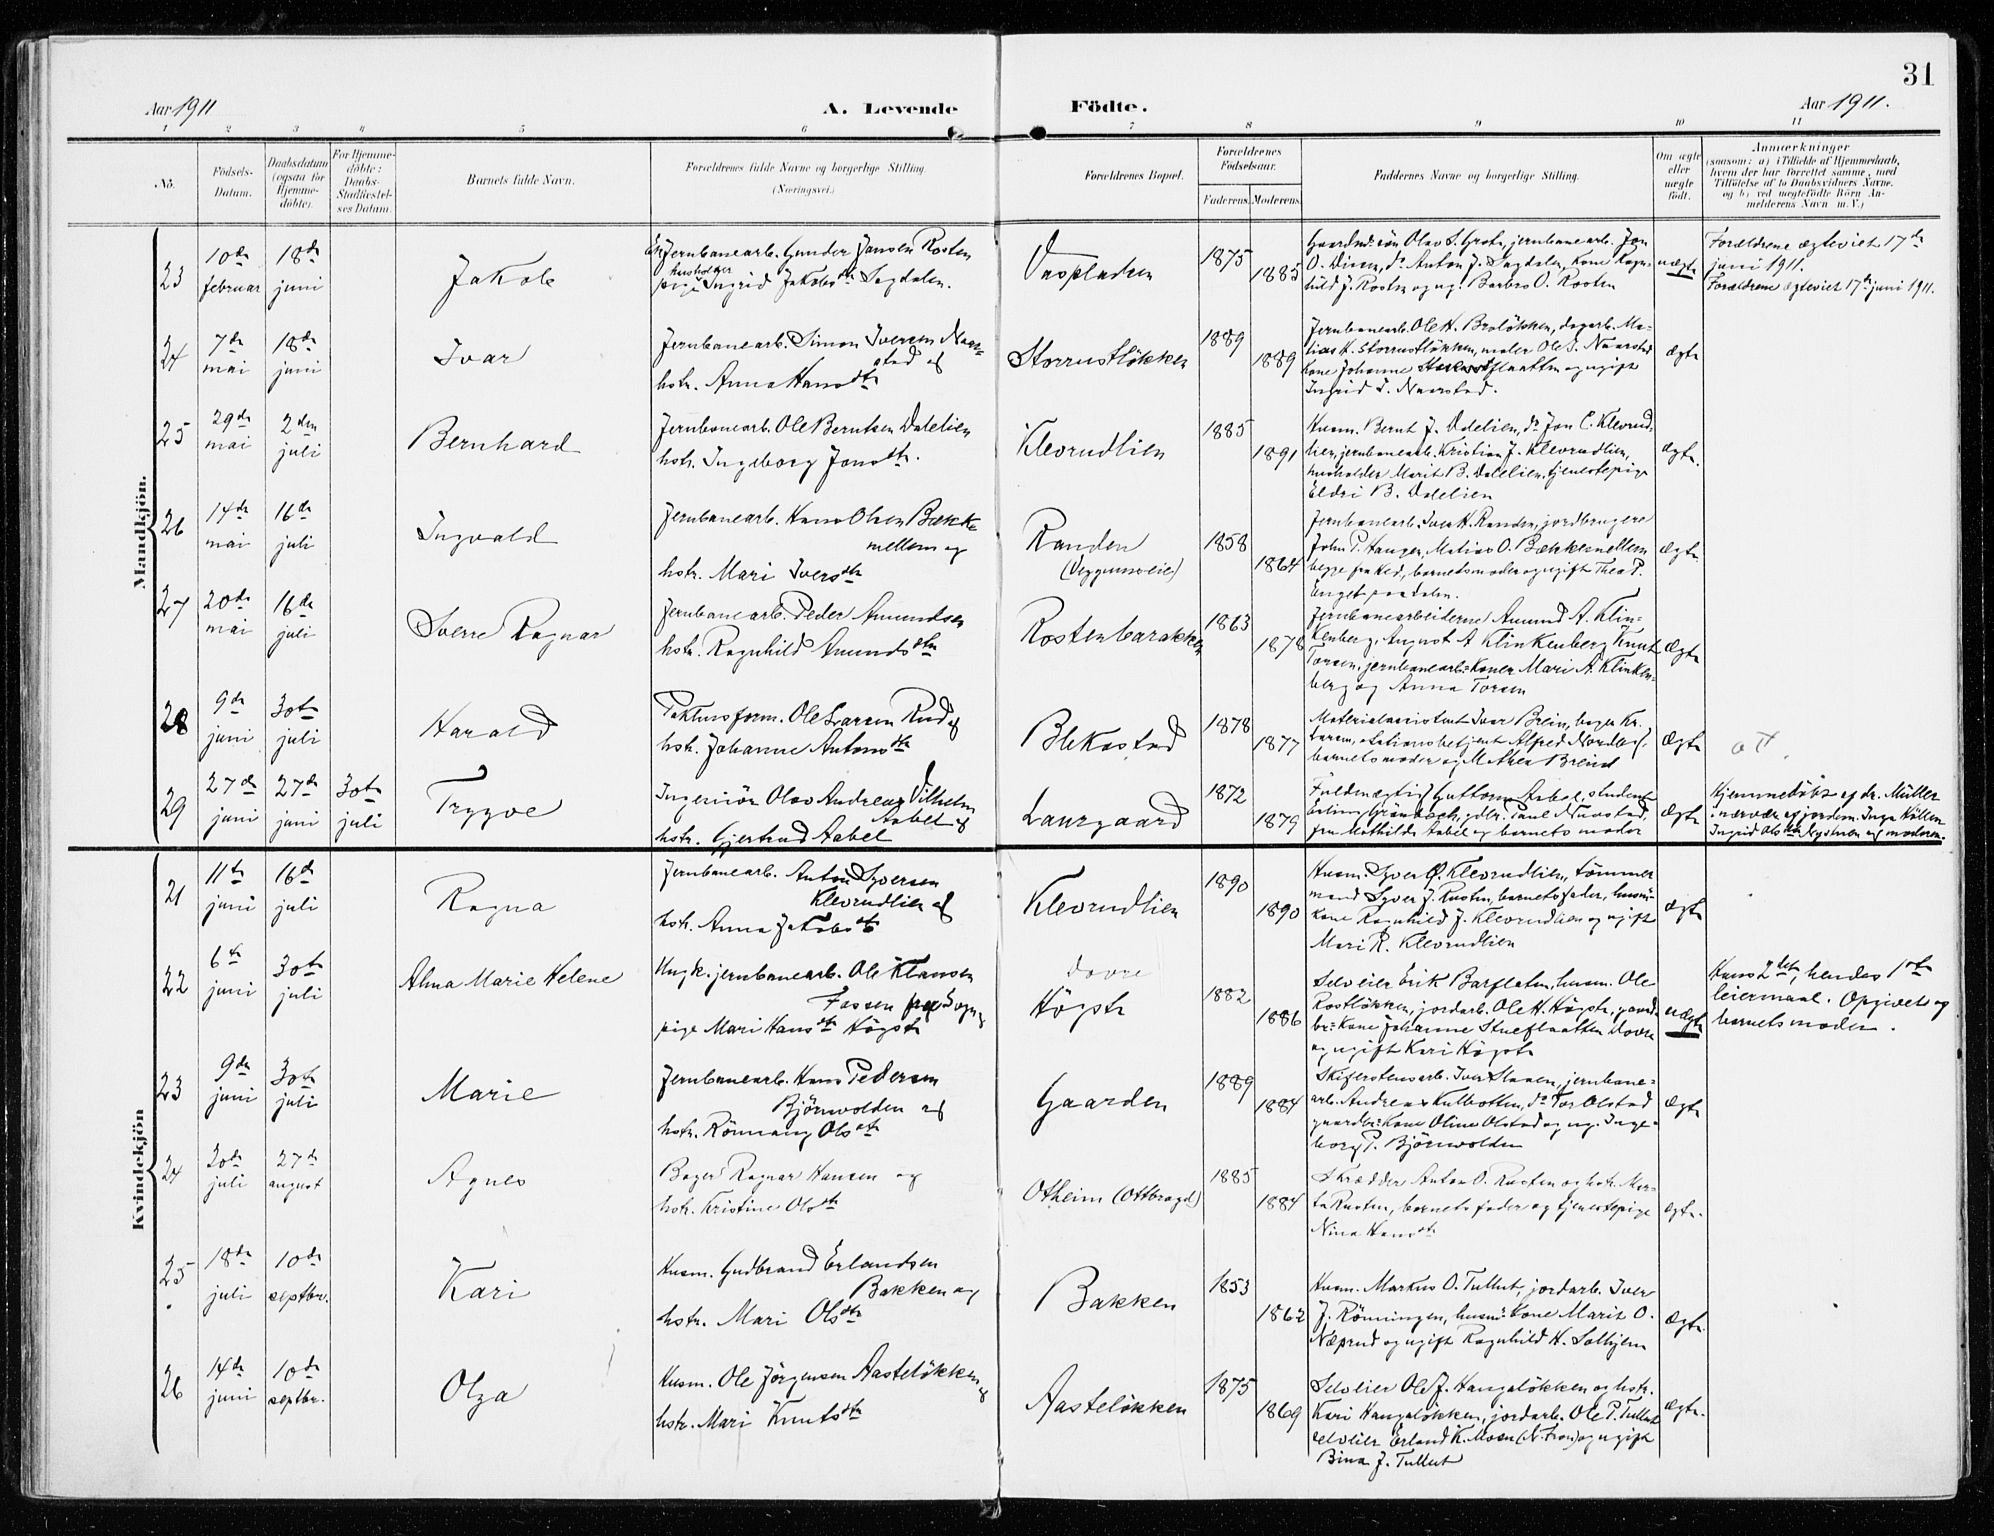 31
Aar 1911
A. Levende
Födte.
Aar 1911.
1 2 3 4 5 6 7 8 9 10 11
No.
Födsels-
Datum.
Daabsdatum
(ogsaa for
Hjemme-
döbte).
For Hjemme-
döbte:
Daabs-
Stadfæstel-
ses Datum.
Barnets fulde Navn.
Forældrenes fulde Navne og borgerlige Stilling.
(Næringsvei.)
Forældrenes Bopæl.
Forældrenes
Födselsaar.
Faderens. Moderens.
Faddernes Navne og borgerlige Stilling.
Om ægte
eller
uægte
födt.
Anmærkninger
(saasom: a) i Tilfælde af Hjemmedaab,
hvem der har forrettet samme, med
Tilföielse af to Daabsvidners Navne,
og b) ved uægtefödte Börn An-
melderens Navn m. V.)
Mandkjön.
23
10de
februar
18de
juni
Jakob
Jernbanearb. Gunder Jansen Rosten
pige Ingrid Jakobsdtr Sagdalen.
1875
1885
Gaardmds søn Olav S. Grote, jernbanearb. Jon
O. Diven, do Anton J. Sagdalen, kone Ragn-
hild J. Rosten og ug. Barbro O. Rosten
uægte
Forældrene ægteviet 17de
juni 1911.
Forældrene ægteviet 17de juni 1911.
24
7de
mai
18de
juni
Ivar
Jernbanearb. Simon Iversen Naar-
stad og
hstr. Anna Hansdtr
Storrustløkken
1889
1889
Jernbanearb. Ole H. Broløkken, dagarb. Ma-
tias H. Storrustløkken, maler Ole S. Naarstad
kone Johanne Stueflaatten og ugift
Ingrid I. Naarstad.
ægte
25
29de
mai
2den
juli
Bernhard
Jernbanearb. Ole Berntsen Dalelien
hstr. Ingeborg Jonsdtr.
Klevrudlien
1885
1891
Husm. Bernt J. Dalelien, do Jon C. Klevrud-
lien, jernbanearb. Kristian J. Klevrudlien,
husholder Marit B. Dalelien, tjenestepige
Eldri B. Dalelien
ægte.
26
14de
mai
16de
juli
Ingvald
Jernbanearb. Hans Olsen Bække
mellem og
hstr. Mari Iversdtr
Randen
(Veggumseie)
1858
1864
Jernbanearb. Iver H. Randen, jordbrugere
John P. Hauger, Matias O. Bækkemellem
begge fra Hed., barnets moder og ugift Thea P.
Enget
ægte.
27
20de
mai
16de
juli
Sverre Ragnar
Jernbanearb. Peder Amundsen
hstr. Ragnhild Amundsdtr
Rostenbarakken
1863
1878
Jernbanearbeiderne Amund A. Klin-
kenberg, August A Klinkenberg Knut
Torsen, jernbanearb: koner Mari A. Klinken-
berg og Anna Torsen
ægte
28
9de
juni
30te
juli
Harald
Paktusform. Ole Larsen Rud og
hstr. Johanne Antonsdtr
Blekastad
1878
1877
Materialassistent Ivar Brein, bager Kr.
Larsen, stationsbetjent Alfred Nordli,
barnets moder og Mathea Breind
ægte
ott.
29
27de
juni
27de
juni
30te
juli
Trygve
Ingeniör Olav Andreas Vilhelm
Aabel og
hstr. Gjertrud Aabel
Laurgaard
1872
1879
Fuldmægtig Guttorm Aabel, student
Erling Grönbech, gdbr. Paul Nuastad,
fru Mathilde Aabel og barnets moder
ægte
Hjemmedöbt af dr. Müller
i nærvær af jordem. Inga Köllen
Ingrid Olsdtr Rysteren og moderen.
Kvindekjön
21
11te
juni
16de
juli
Ragna
Jernbanearb. Anton Syversen
Klevrudlien og
hstr. Anna Jakobsdtr
Klevrudlien
1890
1890
Husm. Syver O. Klevrudlien, tömmer
mand Syver J. Rusten, barnets fader, husm:
kone Ragnhild J. Klevrudlien og ugift
Mari R. Klevrudlien
ægte
22
6te
juni
30te
juli
Alma Marie Helene
Ungk. jernbanearb. Ole Klausen
Fossen fra Sogn og
pige Mari Hansdtr Högste
dovre
Högste
1882
1886
Selveier Erik Barfleten, husm. Ole
Rostløkken, jordarb. Ole H. Högste, gaard-
br: kone Johanne Stueflaatten Dovre
og ugift Kari Högste
uægte
Hans 2det, hendes 1ste
leiermaal. Opgivet og
barnets moder.
23
9de
juni
30te
juli
Marie
Jernbanearb. Hans Pedersen
Bjørnvolden og
hstr. Rönnaug Olsdtr
Gaarden
1889
1884
Skiferstensarb. Iver Slaaen, jernbane-
arb. Andreas Kulbotten, do Tor Olstad
gaardbr: kone Oline Olstad og ug. Inge-
borg P. Bjørnvolden
ægte
24
20de
juli
27de
august
Agnes
Bager Ragnar Hansen og
hstr. Kristine Olsdtr
Otheim (Ottbragd)
1885
1884
Skrædder Anton O. Rusten og hstr. Mar-
ta Rusten, barnets fader og tjenestepige
Nina Hansdtr
ægte.
25
18de
juli
10de
septbr.
Kari
Husm. Gudbrand Erlandsen
Bakken og
hstr. Mari Olsdtr
Bakken
1853
1862
Husm. Markus O. Tullut, jordarb. Iver
J. Rönningen, husm: kone Marit O.
Næprud og ugift Ragnhild H. Solhjem
ægte.
26
14de
juni
10de
septbr.
Olga
Husm. Ole Jörgensen Aasteløkken og
hstr. Mari Knutsdtr
Aasteløkken
1875
1869
Selveier Ole J. Haugaløkken og hstr.
Kari Haugaløkken, jordarb. Ole P. Tullut
selveier Erland K. Moen (N. Fron) og ugift
Bina J. Tullut
ægte.